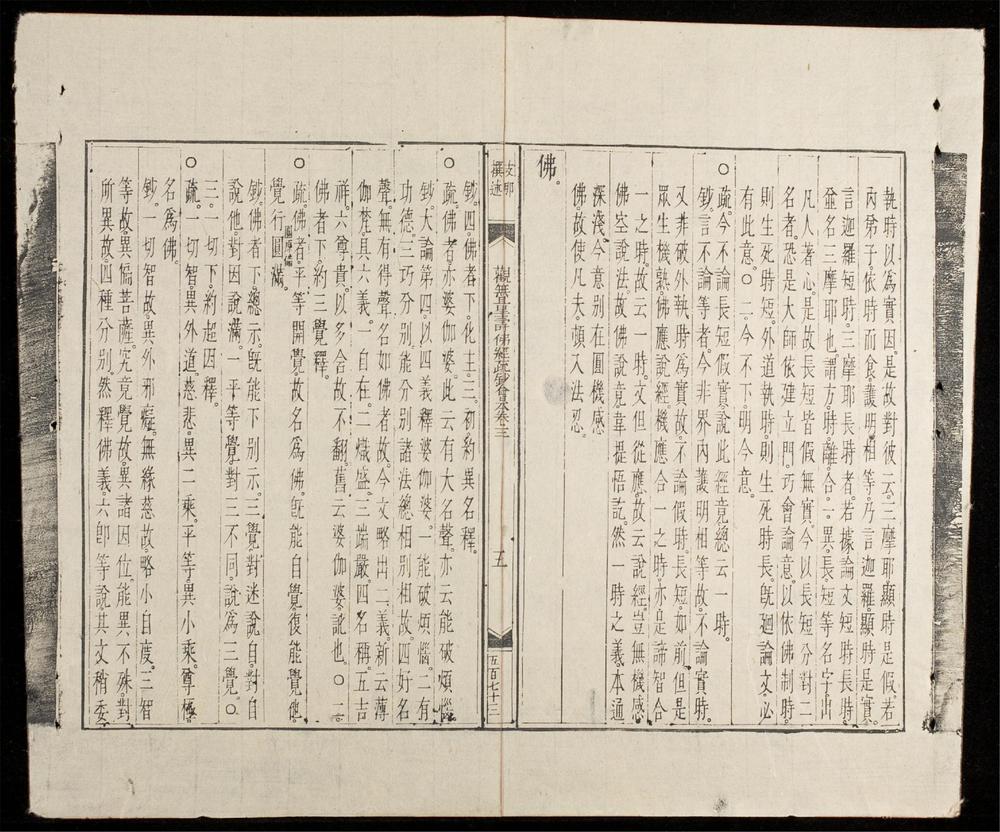 執時以為實因。是故對彼云三摩耶顯時是假若
內弟子。依時而食護明相等。乃言迦羅顯時是實。
言迦羅短時。三摩耶長時者。若據論文短時長時。
並名三摩耶也。謂方時離合。一異長短等名字出
凡人著心。是故長短皆假無實。今以長短分對二
名者。恐是大師依建立門。巧會論意。以依佛制時。
則生死時短。外道執時。則生死時長。既迴論文。必
有此意。○二。今不下。明今意。
○疏。今不論長短假實。說此經竟。總云一時。
鈔。言不論等者。今非界內護明相等故。不論實時。
又非破外執時為實故。不論假時。長短如前。但是
眾生機熟。佛應說經。機應合一之時。亦是諦智合
一之時。故云一時。文但從應。故云說經。豈無機感
佛空說法。故佛說竟韋提悟訖。然一時之義。本通
深淺。今意別在圓機感
佛。故使凡夫頓入法忍。
佛。
支那
撰述
觀無量壽佛經疏鈔會本卷三
五
五百七十三
鈔。四佛者下。化主。三。初約異名釋。
○疏。佛者。亦婆伽婆。此云有大名聲。亦云能破煩惱。
鈔。大論第四。以四義釋婆伽婆。一能破煩惱。二有
功德。三巧分別。能分別諸法總相別相故。四好名
聲。無有得聲名如佛者故。今文略出二義。新云薄
伽梵具六義。一自在。二熾盛。三端嚴。四名稱。五吉
祥。六尊貴。以多合故不翻。舊云婆伽婆訛也。○二。
佛者下。約三覺釋。
○疏。佛者。平等開覺故名為佛。既能自覺。復能覺他。
覺行圓滿。
鈔。佛者下。總示。既能下。別示。三覺。對迷說自。對自
說他。對因說滿。一平等覺。對三不同。說為三覺。○
三。一切下。約超因釋。
○疏。一切智異外道。慈悲。異二乘。平等異小乘。尊極
名為佛。
鈔。一切智故。異外邪癡。無緣慈故。略小自度。三智
等故。異偏菩薩。究竟覺故。異諸因位。能異不殊。對
所異故。四種分別。然釋佛義。六即等說。其文稍委